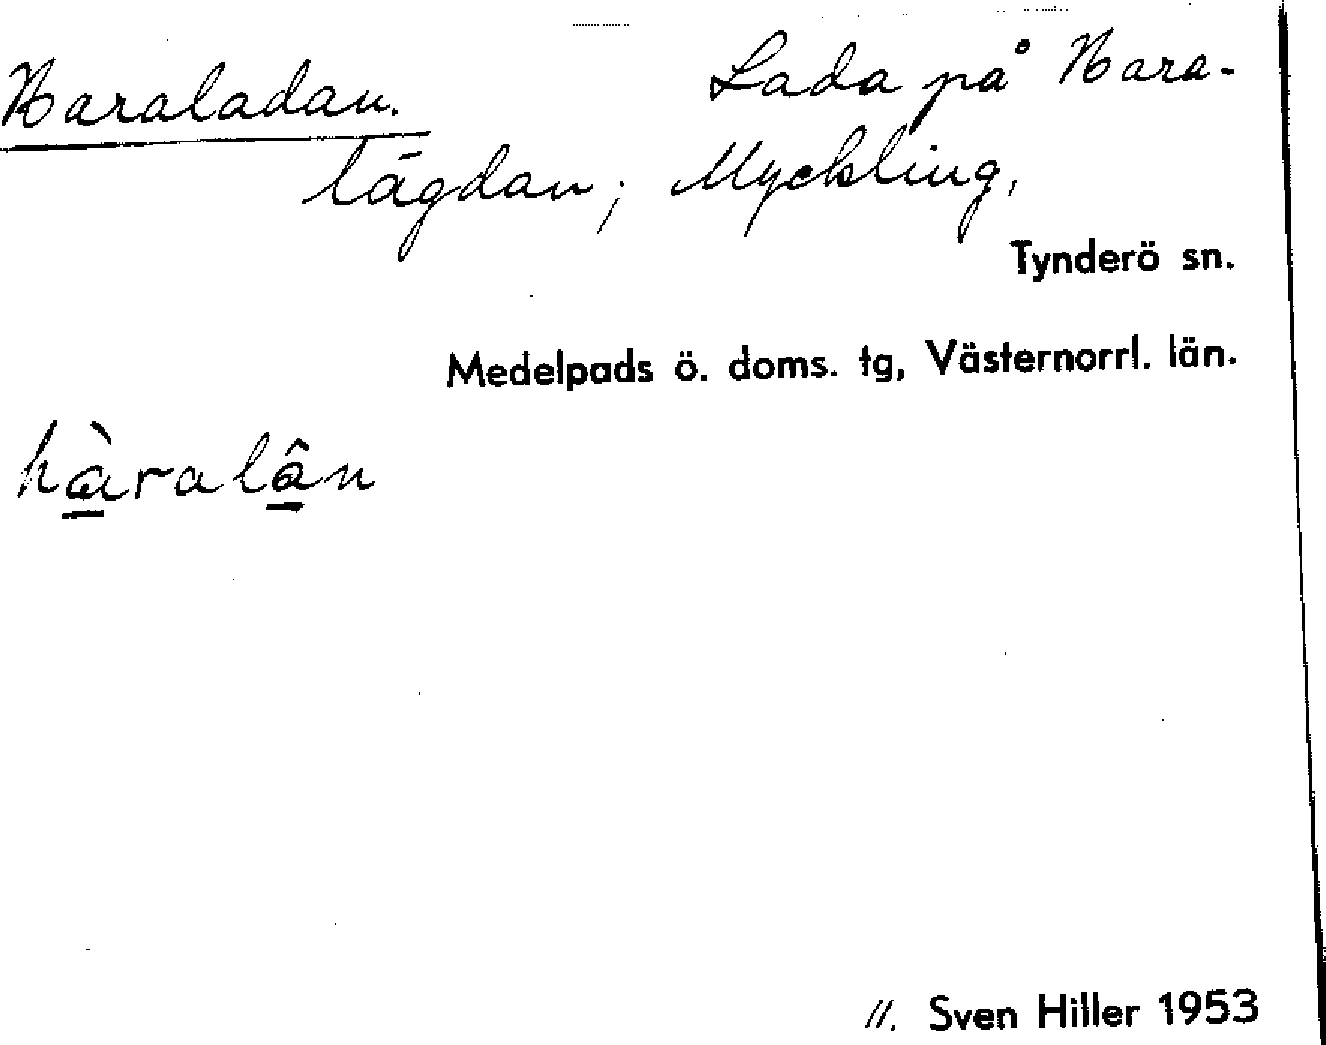 Haraladan. Lada på Hara-
lägdan; Myckling,
Tynderö sn.
Medelpads ö. doms. tg, Västernorrl. län.
hàralân
11. Sven Hiller 1953